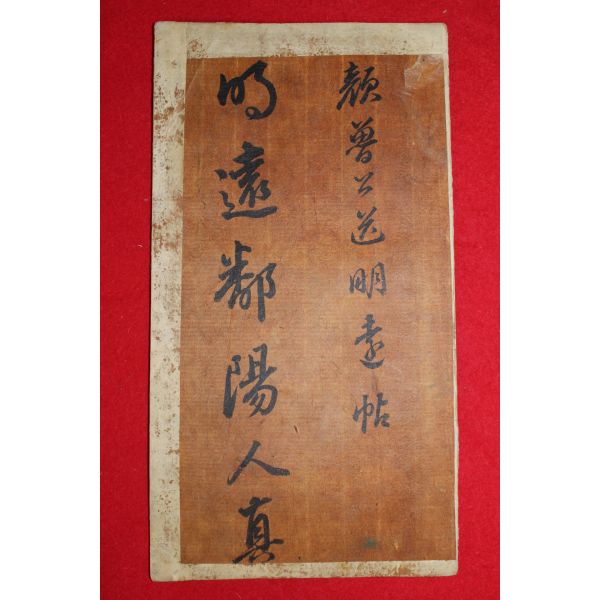 顏魯公送明遠帖
明遠鄱陽人真